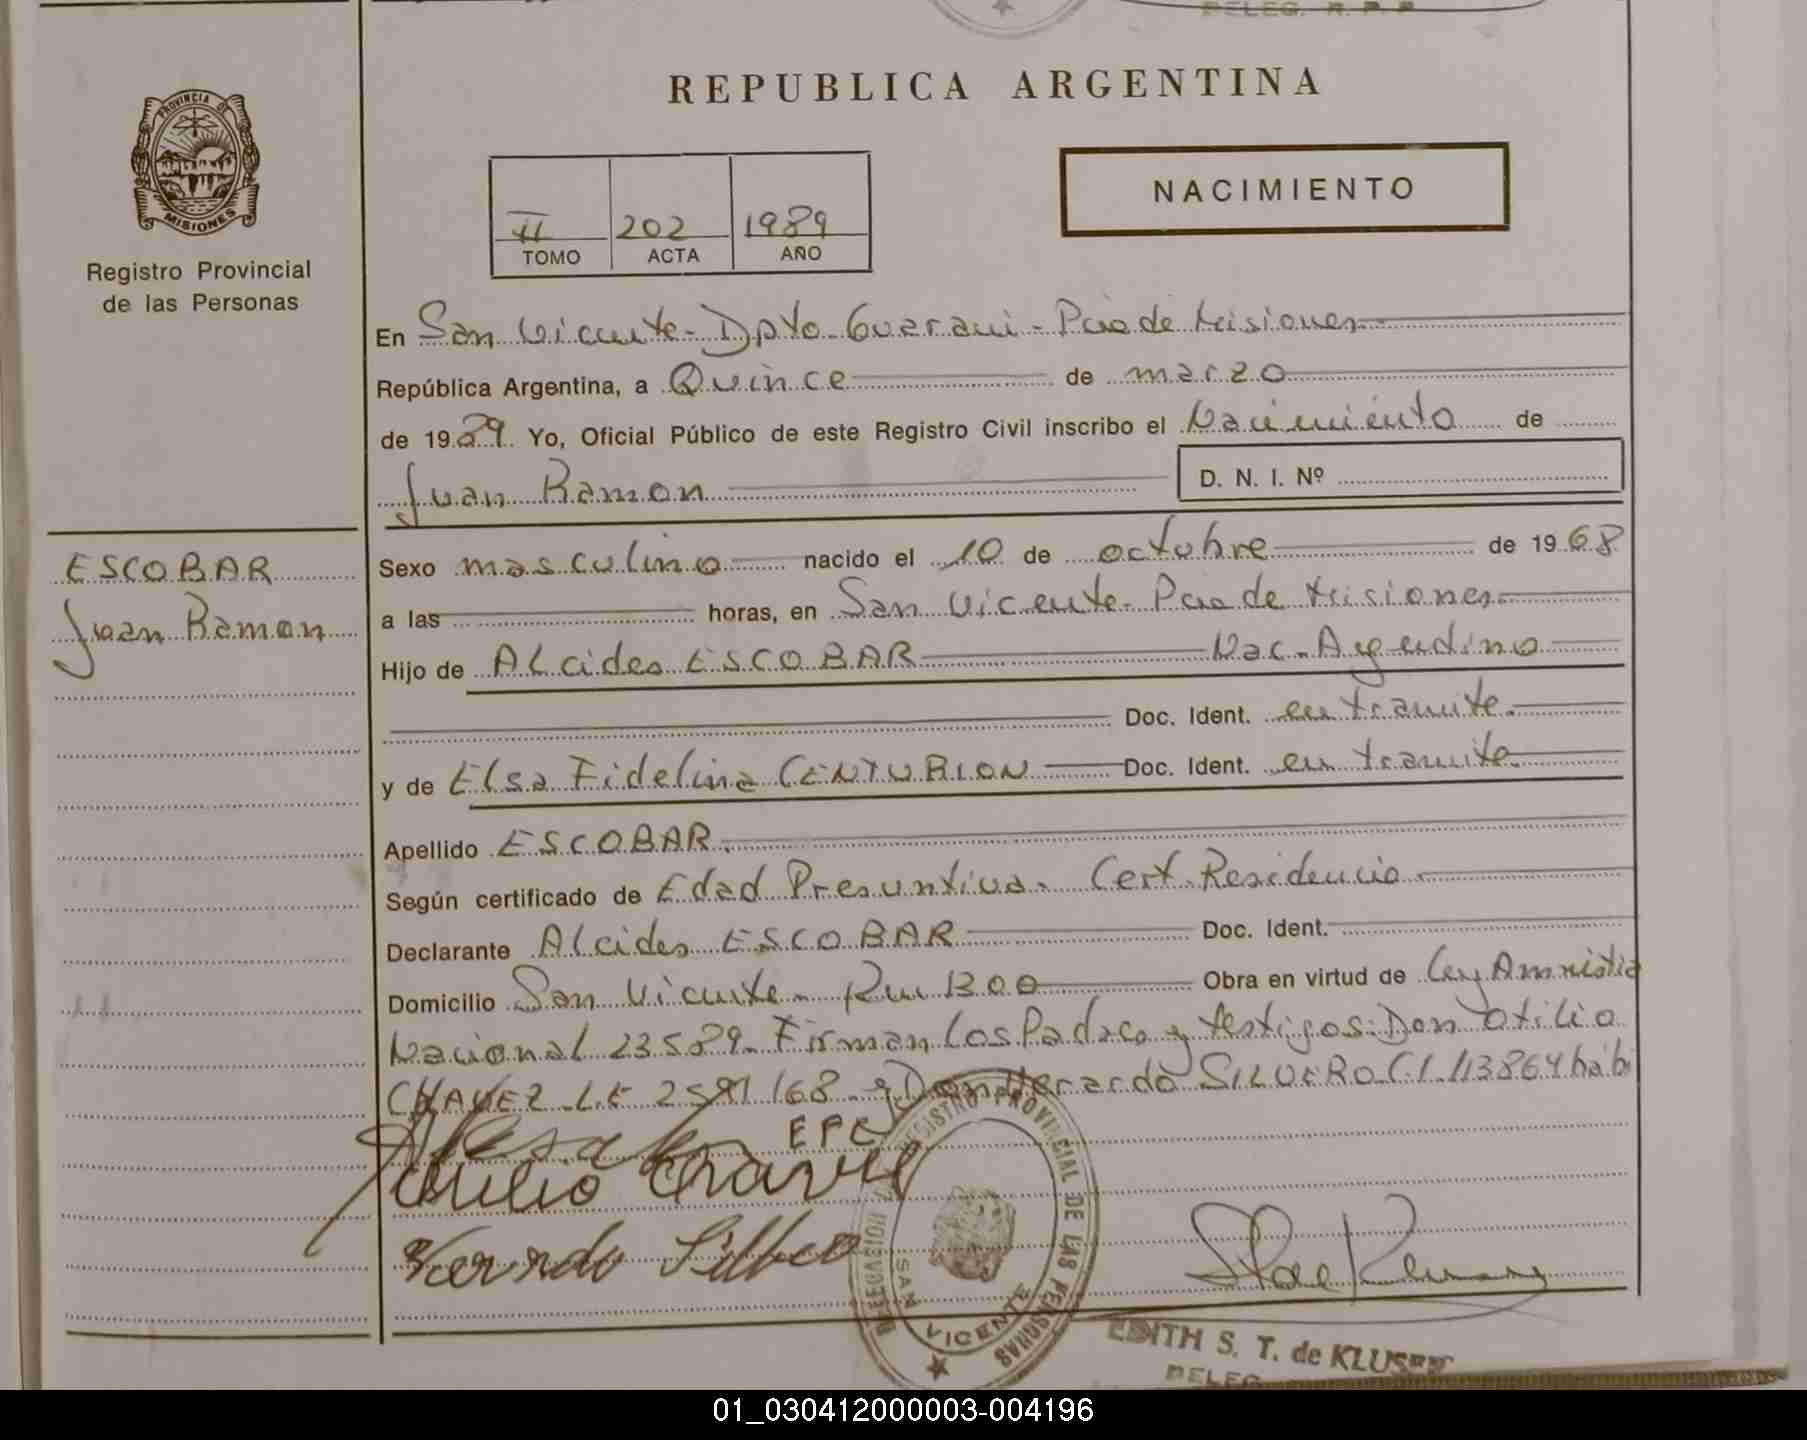 DELEG. R. P. P.
REPUBLICA ARGENTINA
PROVINCIA DE
MISIONES
Registro Provincial
de las Personas
NACIMIENTO
II 202 1989
TOMO ACTA AÑO
En San Vicente - Dpto. Guarani - Pcia de Misiones
República Argentina, a Quince de marzo
de 1989 Yo, Oficial Público de este Registro Civil inscribo el Nacimiento de
Juan Ramon D. N. I. Nº
ESCOBAR
Juan Ramon
Sexo masculino nacido el 10 de octubre de 1968
a las horas, en San Vicente - Pcia de Misiones
Hijo de Alcides ESCOBAR Nac. Argentino
Doc. Ident. en tramite.
y de Elsa Fidelina CENTURION Doc. Ident. en tramite.
Apellido ESCOBAR.
Según certificado de Edad Presuntiva. Cert. Residencia
Declarante Alcides ESCOBAR Doc. Ident.
Domicilio San Vicente - 1300 Obra en virtud de Ley Amnistia
Nacional 23589. Firman Los Padres y testigos: Don Otilio
CHAVEZ L.E 2591168 y Don Herardo SILVERO C.I. 113864 hab
EPC
Otilio Chavez
DELEGACION REGISTRO PROVINCIAL DE LAS PERSONAS
SAN VICENTE
EDITH S. T. de KLUSEY
DELEG
01_030412000003-004196